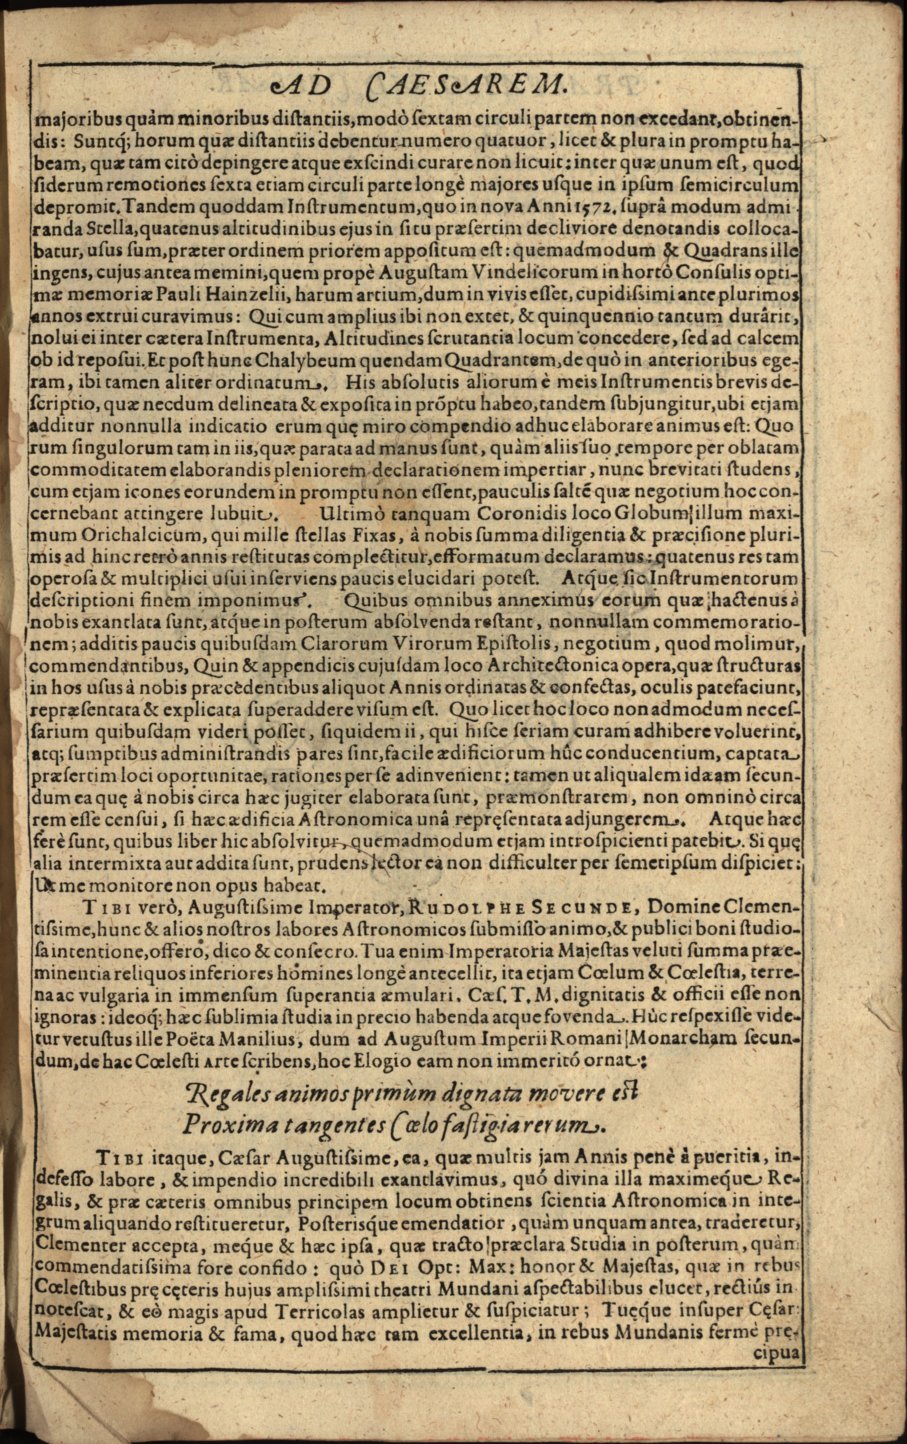 AD CAESAREM.
majoribus quàm minoribus distantiis, modò sextam circuli partem non excedant, obtinen-
dis: Suntq́; horum quæ distantiis debentur numero quatuor, licet & plura in promptu ha-
beam, quæ tam citò depingere atque exscindi curare non licuit: inter quæ unum est, quod
siderum remotiones sexta etiam circuli parte longè majores usque in ipsum semicirculum
depromit. Tandem quoddam Instrumentum, quo in nova Anni 1572. suprâ modum admi-
randa Stella, quatenus altitudinibus ejus in situ præsertim decliviore denotandis colloca-
batur, usus sum, præter ordinem priorem appositum est: quemadmodum & Quadrans ille
ingens, cujus antea memini, quem propè Augustam Vindelicorum in hortò Consulis opti-
mæ memoriæ Pauli Hainzelii, harum artium, dum in vivis esset, cupidissimi ante plurimos
annos extrui curavimus: Qui cum amplius ibi non extet, & quinquennio tantum durârit,
nolui ei inter cætera Instrumenta, Altitudines scrutantia locum concedere, sed ad calcem
ob id reposui. Et post hunc Chalybeum quendam Quadrantem, de quò in anterioribus ege-
ram, ibi tamen aliter ordinatum. His absolutis aliorum è meis Instrumentis brevis de-
scriptio, quæ necdum delineata & exposita in prõptu habeo, tandem subjungitur, ubi etjam
additur nonnulla indicatio erum quę miro compendio adhuc elaborare animus est: Quo
rum singulorum tam in iis, quæ parata ad manus sunt, quàm aliis suo tempore per oblatam
commoditatem elaborandis pleniorem declarationem impertiar, nunc brevitati studens,
cum etjam icones eorundem in promptu non essent, pauculis saltẽ quæ negotium hoc con-
cernebant attingere lubuit. Ultimò tanquam Coronidis loco Globum illum maxi-
mum Orichalcicum, qui mille stellas Fixas, à nobis summa diligentia & præcisione pluri-
mis ad hinc retrò annis restitutas complectitur, efformatum declaramus: quatenus res tam
operosa & multiplici usui inserviens paucis elucidari potest. Atq́ue sic Instrumentorum
descriptioni finem imponimus. Quibus omnibus anneximus eorum quæ hactenus à
nobis exantlata sunt, atq́ue in posterum absolvenda restant, nonnullam commemoratio-
nem; additis paucis quibusdam Clarorum Virorum Epistolis, negotium, quod molimur,
commendantibus, Quin & appendicis cujusdam loco Architectonica opera, quæ structuras
in hos usus à nobis præcèdentibus aliquot Annis ordinatas & confectas, oculis patefaciunt,
repræsentata & explicata superaddere visum est. Quo licet hoc loco non admodum neces-
sarium quibusdam videri posset, siquidem ii, qui hisce seriam curam adhibere voluerint,
atq; sumptibus administrandis pares sint, facile ædificiorum hûc conducentium, captata
præsertim loci oportunitae, rationes per se adinvenient: tamen ut aliqualem idæam secun-
dum ea quę à nobis circa hæc jugiter elaborata sunt, præmonstrarem, non omninò circa
rem esse censui, si hæc ædificia Astronomica unâ repręsentata adjungerem. Atque hæc
ferè sunt, quibus liber hic absolvitur, quemadmodum etjam introspicienti patebit. Si quę
alia intermixta aut addita sunt, prudens lector ea non difficulter per semetipsum dispiciet:
Ut me monitore non opus habeat.
TIBI verò, Augustissime Imperator, RUDOLPHE SECUNDE, Domine Clemen-
tissime, hunc & alios nostros labores Astronomicos submisso animo, & publici boni studio-
sa intentione, offerò, dico & consecro. Tua enim Imperatoria Majestas veluti summa præe-
minentia reliquos inferiores hómines longè antecellit, ita etjam Cœlum & Cœlestia, terre-
na ac vulgaria in immensum superantia æmulari. Cæs. T. M. dignitatis & officii esse non
ignoras: ideoq́; hæc sublimia studia in precio habenda atque fovenda. Hûc respexisse vide-
tur vetustus ille Poëta Manilius, dum ad Augustum Imperii Romani Monarcham secun-
dum, de hac Cœlesti ARTE scribens, hoc Elogio eam non immeritó ornat:
Regales animos primùm dignata movere est
Proxima tangentes Cœlo fastigia rerum.
TIBI itaque, Cæsar Augustissime, ea, quæ multis jam Annis penè à pueritia, in-
defesso labore, & impendio incredibili exantlavimus, quó divina illa maximeq́ue Re-
galis, & præ cæteris omnibus principem locum obtinens scientia Astronomica in inte-
grum aliquando restitueretur, Posterisq́ue emendatior, quàm unquam antea, traderetur,
Clementer accepta, meq́ue & hæc ipsa, quæ tracto præclara Studia in posterum, quàm
commendatissima fore confido: quò DEI Opt: Max: honor & Majestas, quæ in rebus
Cœlestibus prę cęteris hujus amplissimi theatri Mundani aspectabilibus elucet, rectiús in
notescat, & eò magis apud Terricolas amplietur & suspiciatur; Tuęq́ue insuper Cęsar:
Majestatis memoria & fama, quod hæc tam excellentia, in rebus Mundanis fermè prę-
cipua